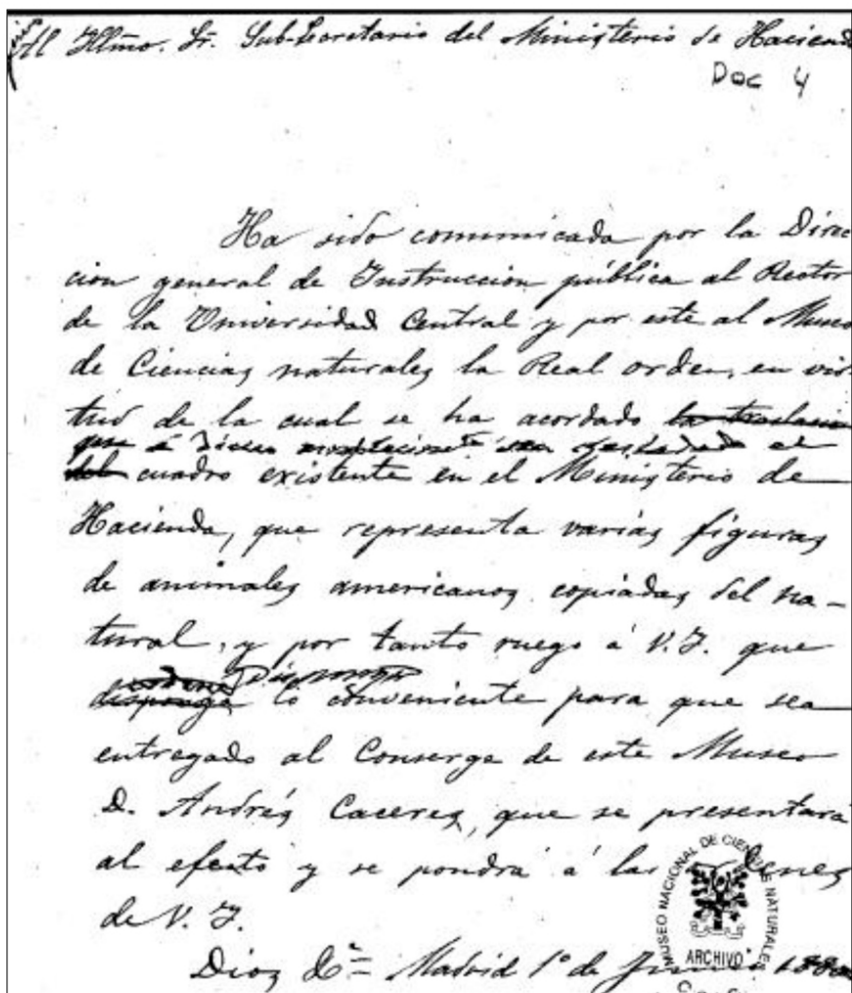 Al Illmo. Sr. Sub-Secretario del Ministerio de Hacienda
Doc 4
Ha sido comunicada por la Direc
cion general de Instruccion pública al Rector
de la Universidad Central y por este al Museo
de Ciencias naturales la Real orden, en vir
tud de la cual se ha acordado la traslacion
que á dicho establecimto sea trasladado el
del cuadro existente en el Ministerio de
Hacienda, que representa varias figuras
de animales americanos, copiadas del na-
tural, y por tanto ruego á V.I. que
ordene Disponga
disponga lo conveniente para que sea
entregado al Conserge de este Museo
D. Andrés Caceres, que se presentará
al efecto y se pondrá á las ordenes
de V. I.
Dios &ª= Madrid 1º de Junio
MUSEO NACIONAL DE CIENCIAS NATURALES
ARCHIVO